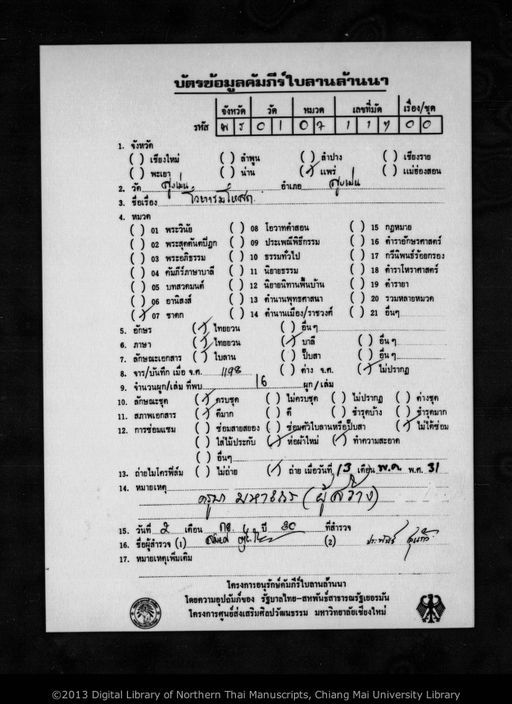 บัตรข้อมูลคัมภีร์ใบลานล้านนา
จังหวัด วัด หมวด เลขที่มัด เรื่อง/ชุด
รหัส พร 01 07 117 00
1. จังหวัด
( ) เชียงใหม่ ( ) ลำพูน ( ) ลำปาง ( ) เชียงราย
( ) พะเยา ( ) น่าน (✓) แพร่ ( ) แม่ฮ่องสอน
2. วัด สูงเม่น อำเภอ สูงเม่น
3. ชื่อเรื่อง
4. หมวด
( ) 01 พระวินัย ( ) 08 โอวาทคำสอน ( ) 15 กฎหมาย
( ) 02 พระสุตตันตปิฎก ( ) 09 ประเพณีพิธีกรรม ( ) 16 ตำราอักษรศาสตร์
( ) 03 พระอภิธรรม ( ) 10 ธรรมทั่วไป ( ) 17 กวีนิพนธ์ร้อยกรอง
( ) 04 คัมภีร์ภาษาบาลี ( ) 11 นิยายธรรม ( ) 18 ตำราโหราศาสตร์
( ) 05 บทสวดมนต์ ( ) 12 นิยายนิทานพื้นบ้าน ( ) 19 ตำรายา
( ) 06 อานิสงส์ ( ) 13 ตำนานพุทธศาสนา ( ) 20 รวมหลายหมวด
(✓) 07 ชาดก ( ) 14 ตำนานเมือง/ราชวงศ์ ( ) 21 อื่นๆ
5. อักษร (✓) ไทยยวน ( ) อื่นๆ
6. ภาษา (✓) ไทยยวน (✓) บาลี ( ) อื่นๆ
7. ลักษณะเอกสาร ( ) ใบลาน ( ) ปั๊บสา ( ) อื่นๆ
8. จาร/บันทึก เมื่อ จ.ศ. 1198 ( ) ค่าง จ.ศ. (✓) ไม่ปรากฏ
9. จำนวนผูก/เล่ม ที่พบ 16 ผูก/เล่ม
10. ลักษณะชุด (✓) ครบชุด ( ) ไม่ครบชุด ( ) ไม่ปรากฏ ( ) ค่างชุด
11. สภาพเอกสาร (✓) ดีมาก ( ) ดี ( ) ชำรุดบ้าง ( ) ชำรุดมาก
12. การซ่อมแซม ( ) ซ่อมสายสยอง ( ) ซ่อมตัวใบลานหรือปั๊บสา (✓) ไม่ได้ซ่อม
( ) ใส่ไม้ประกับ (✓) ห่อผ้าใหม่ (✓) ทำความสะอาด
( ) อื่นๆ
13. ถ่ายไมโครฟิล์ม ( ) ไม่ถ่าย (✓) ถ่าย เมื่อวันที่ 13 เดือน พ.ค. พ.ศ. 31
14. หมายเหตุ
ครูบา มหาเถร (ผู้สร้าง)
15. วันที่ 2 เดือน กย. ปี 30 ที่สำรวจ
16. ชื่อผู้สำรวจ (1) (2)
17. หมายเหตุเพิ่มเติม
โครงการอนุรักษ์คัมภีร์ใบลานล้านนา
โดยความอุปถัมภ์ของ รัฐบาลไทย-สหพันธ์สาธารณรัฐเยอรมัน
โครงการศูนย์ส่งเสริมศิลปวัฒนธรรม มหาวิทยาลัยเชียงใหม่
©2013 Digital Library of Northern Thai Manuscripts, Chiang Mai University Library